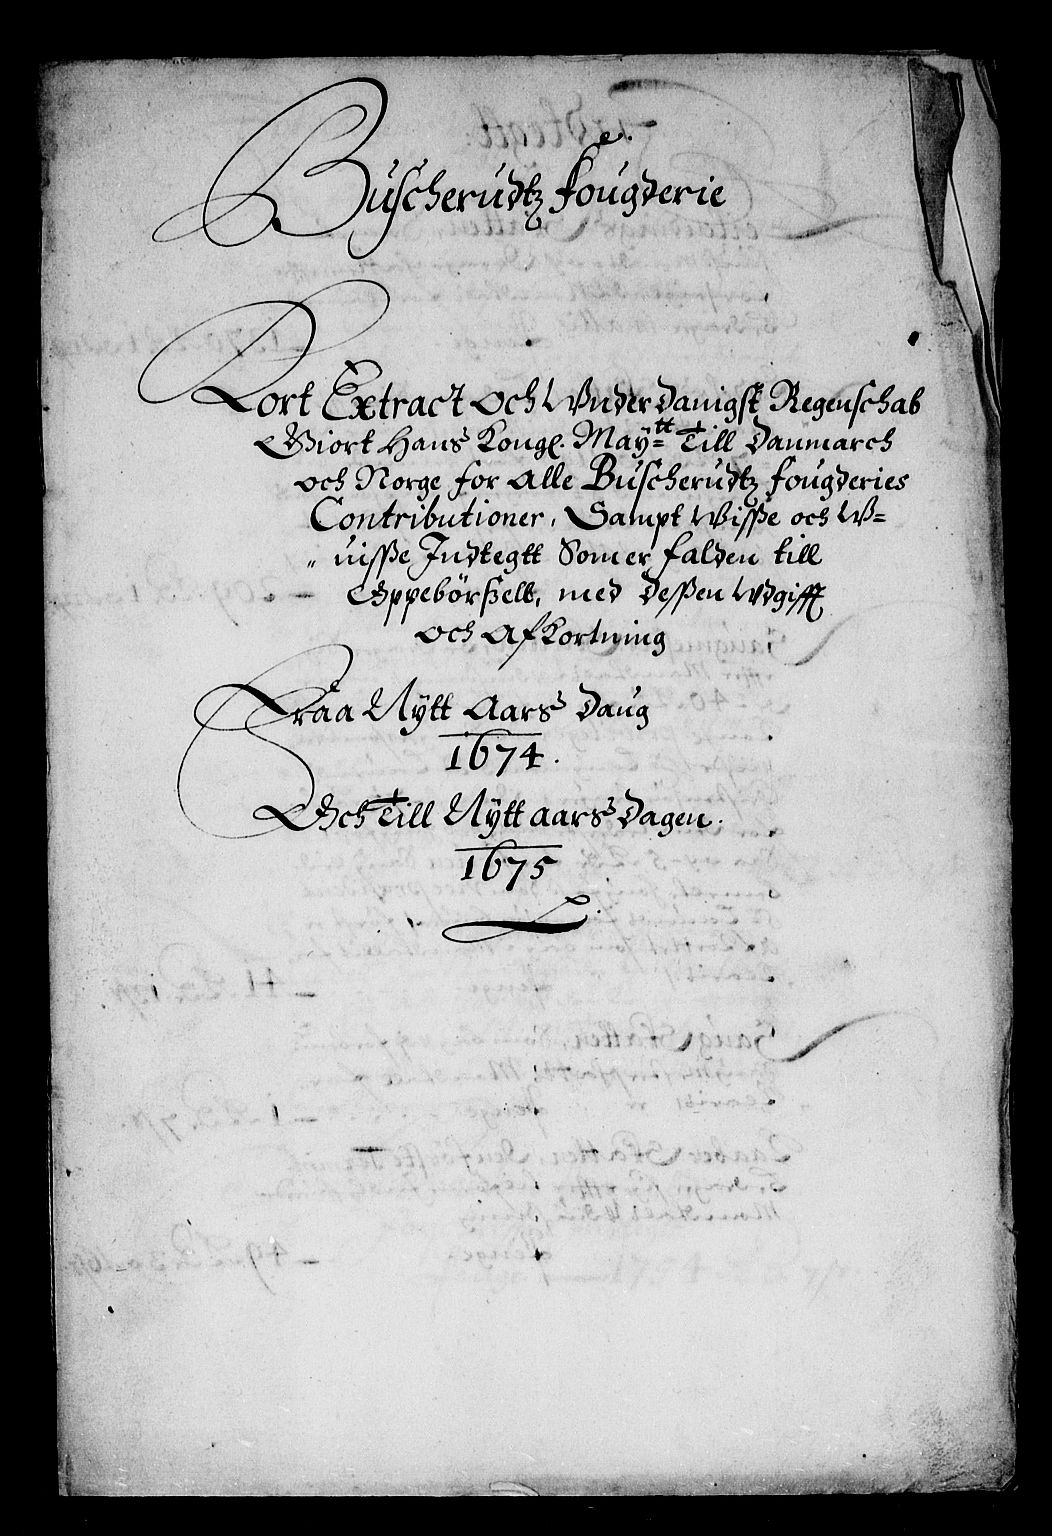 Buscherudtz fougderie
Kort Extract och Vnderdanigst Regenschab
Giort Hans Kongl. May:tt Till Danmarch
och Norge for Alle Buscherudtz fougderies
Contributioner, Sampt Wisße och W=
„ uisße Indtegtt Som er falden till
Oppebörßell, med deßen Vdgifft
och Afkortning
Fraa Nÿtt Aars Daug
1674.
Och Till Nÿtt aars Dagen.
1675